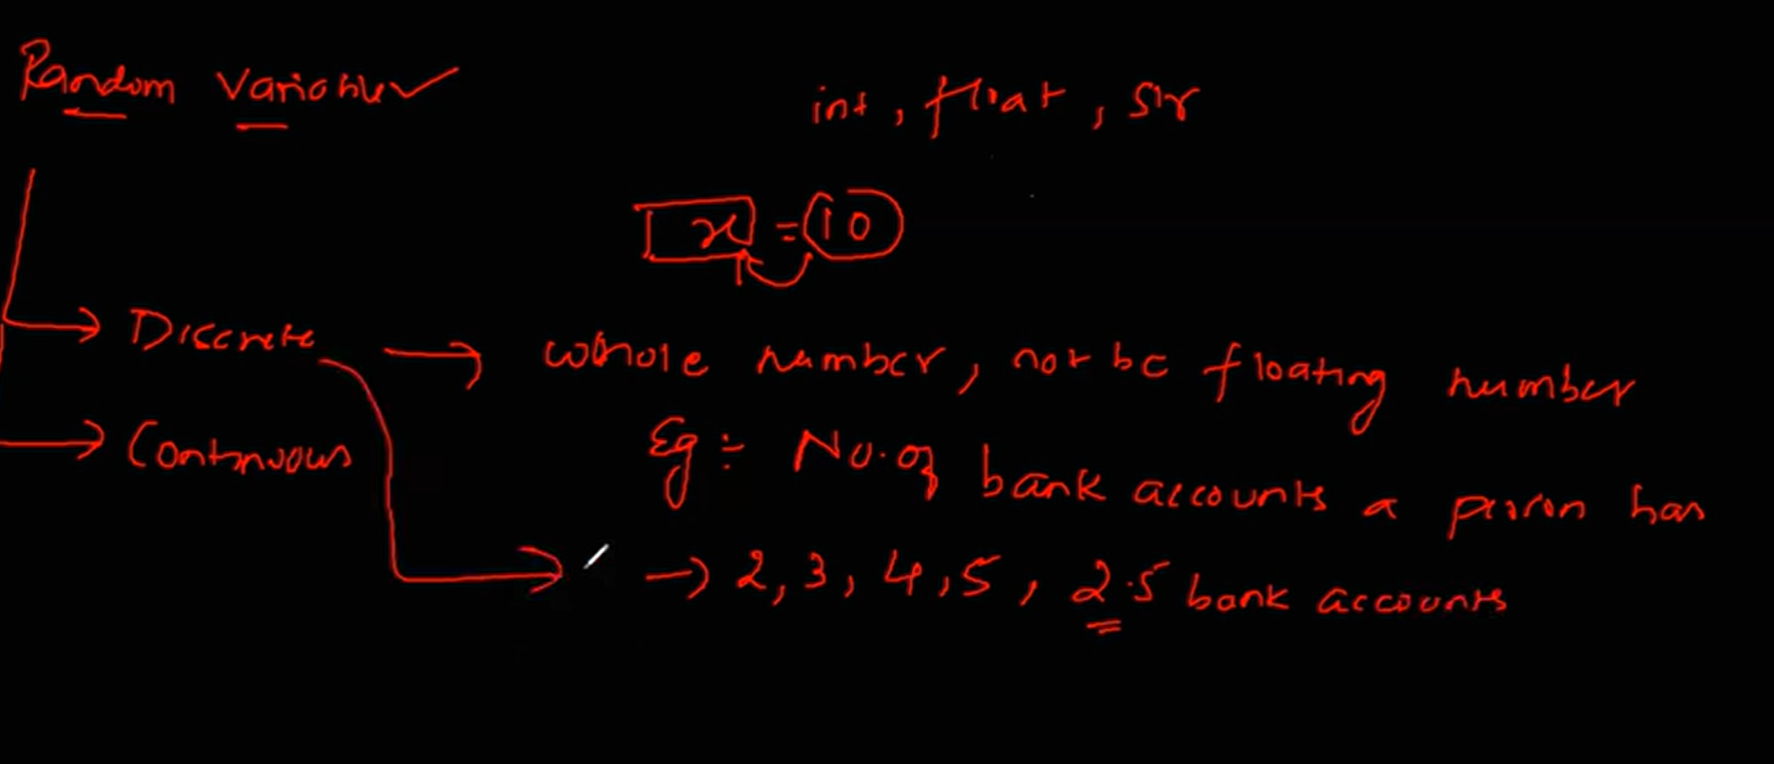 Random Variables
int, float, str
x = 10
Discrete → whole number, not be floating number
Continuous
Eg :- No. of bank accounts a person has
→ 2, 3, 4, 5, 2.5 bank accounts